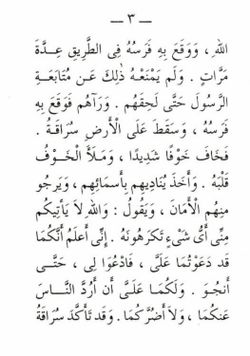 — ٣ —
اللهِ ، وَوَقَعَ بِهِ فَرَسُهُ فِى الطَّرِيقِ عِدَّةَ
مَرَّاتٍ . وَلَم يَمْنَعْهُ ذٰلِكَ عَن مُتَابَعَةِ
الرَّسُولِ حَتَّى لَحِقَهُم . وَرَآهُم فَوَقَعَ بِهِ
فَرَسُهُ ، وَسَقَطَ عَلَى الْأَرْضِ سُرَاقَةُ .
فَخَافَ خَوْفًا شَدِيدًا ، وَمَلَأَ الْخَوْفُ
قَلْبَهُ . وَأَخَذَ يُنَادِيهِم بِأَسْمَائِهِم ، وَيَرجُو
مِنهُم الْأَمَانَ ، وَيَقُولُ : وَاللهِ لَا يَأْتِيكُم
مِنِّى أَىُّ شَىْءٍ تَكرَهُونَهُ . إِنِّى أَعلَمُ أَنَّكُمَا
قَد دَعَوْتُمَا عَلَىَّ ، فَادْعُوَا لِى ، حَتَّـى
أَنجُوَ . وَلَكُمَا عَلَىَّ أَن أَرُدَّ النَّاسَ
عَنكُمَا ، وَلَا أَضُرَّكُمَا . وَقَد تَأَكَّدَ سُرَاقَةُ